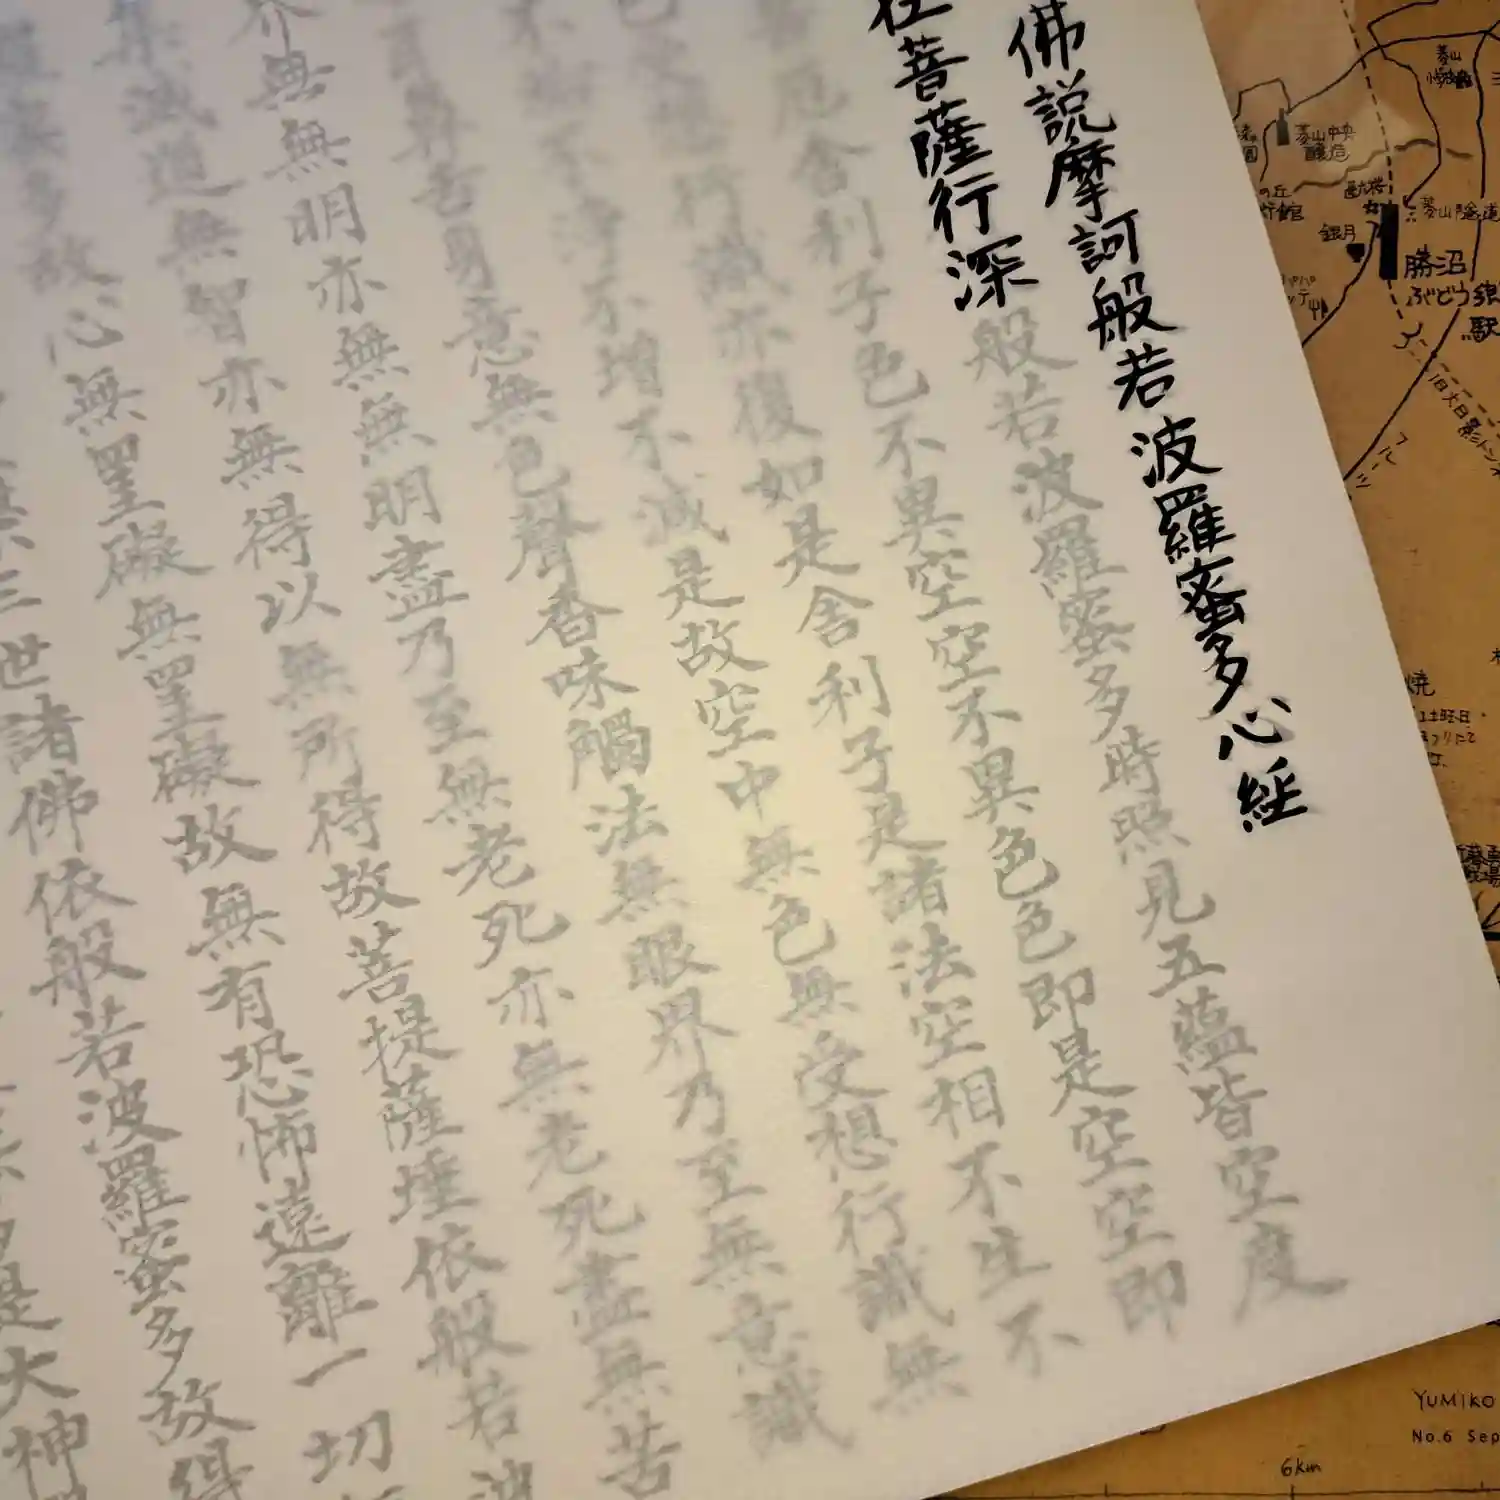 佛説摩訶般若波羅蜜多心経
在菩薩行深般若波羅蜜多時照見五蘊皆空度
厄舎利子色不異空空不異色色即是空空即
色受想行識亦復如是舎利子是諸法空相不生不
不垢不浄不増不減是故空中無色無受想行識無
耳鼻舌身意無色聲香味觸法無眼界乃至無意識
界無無明亦無無明盡乃至無老死亦無老死盡無苦
集滅道無智亦無得以無所得故菩提薩埵依般若波
蜜多故心無罣礙無罣礙故無有恐怖遠離一切
三世諸佛依般若波羅蜜多故得
多是大神
菱山中央
醸造
銀月
菱山隧道
勝沼
ぶどう
駅
フルーツ
焼
土曜日
YUMIKO
No.6 Sep
6km